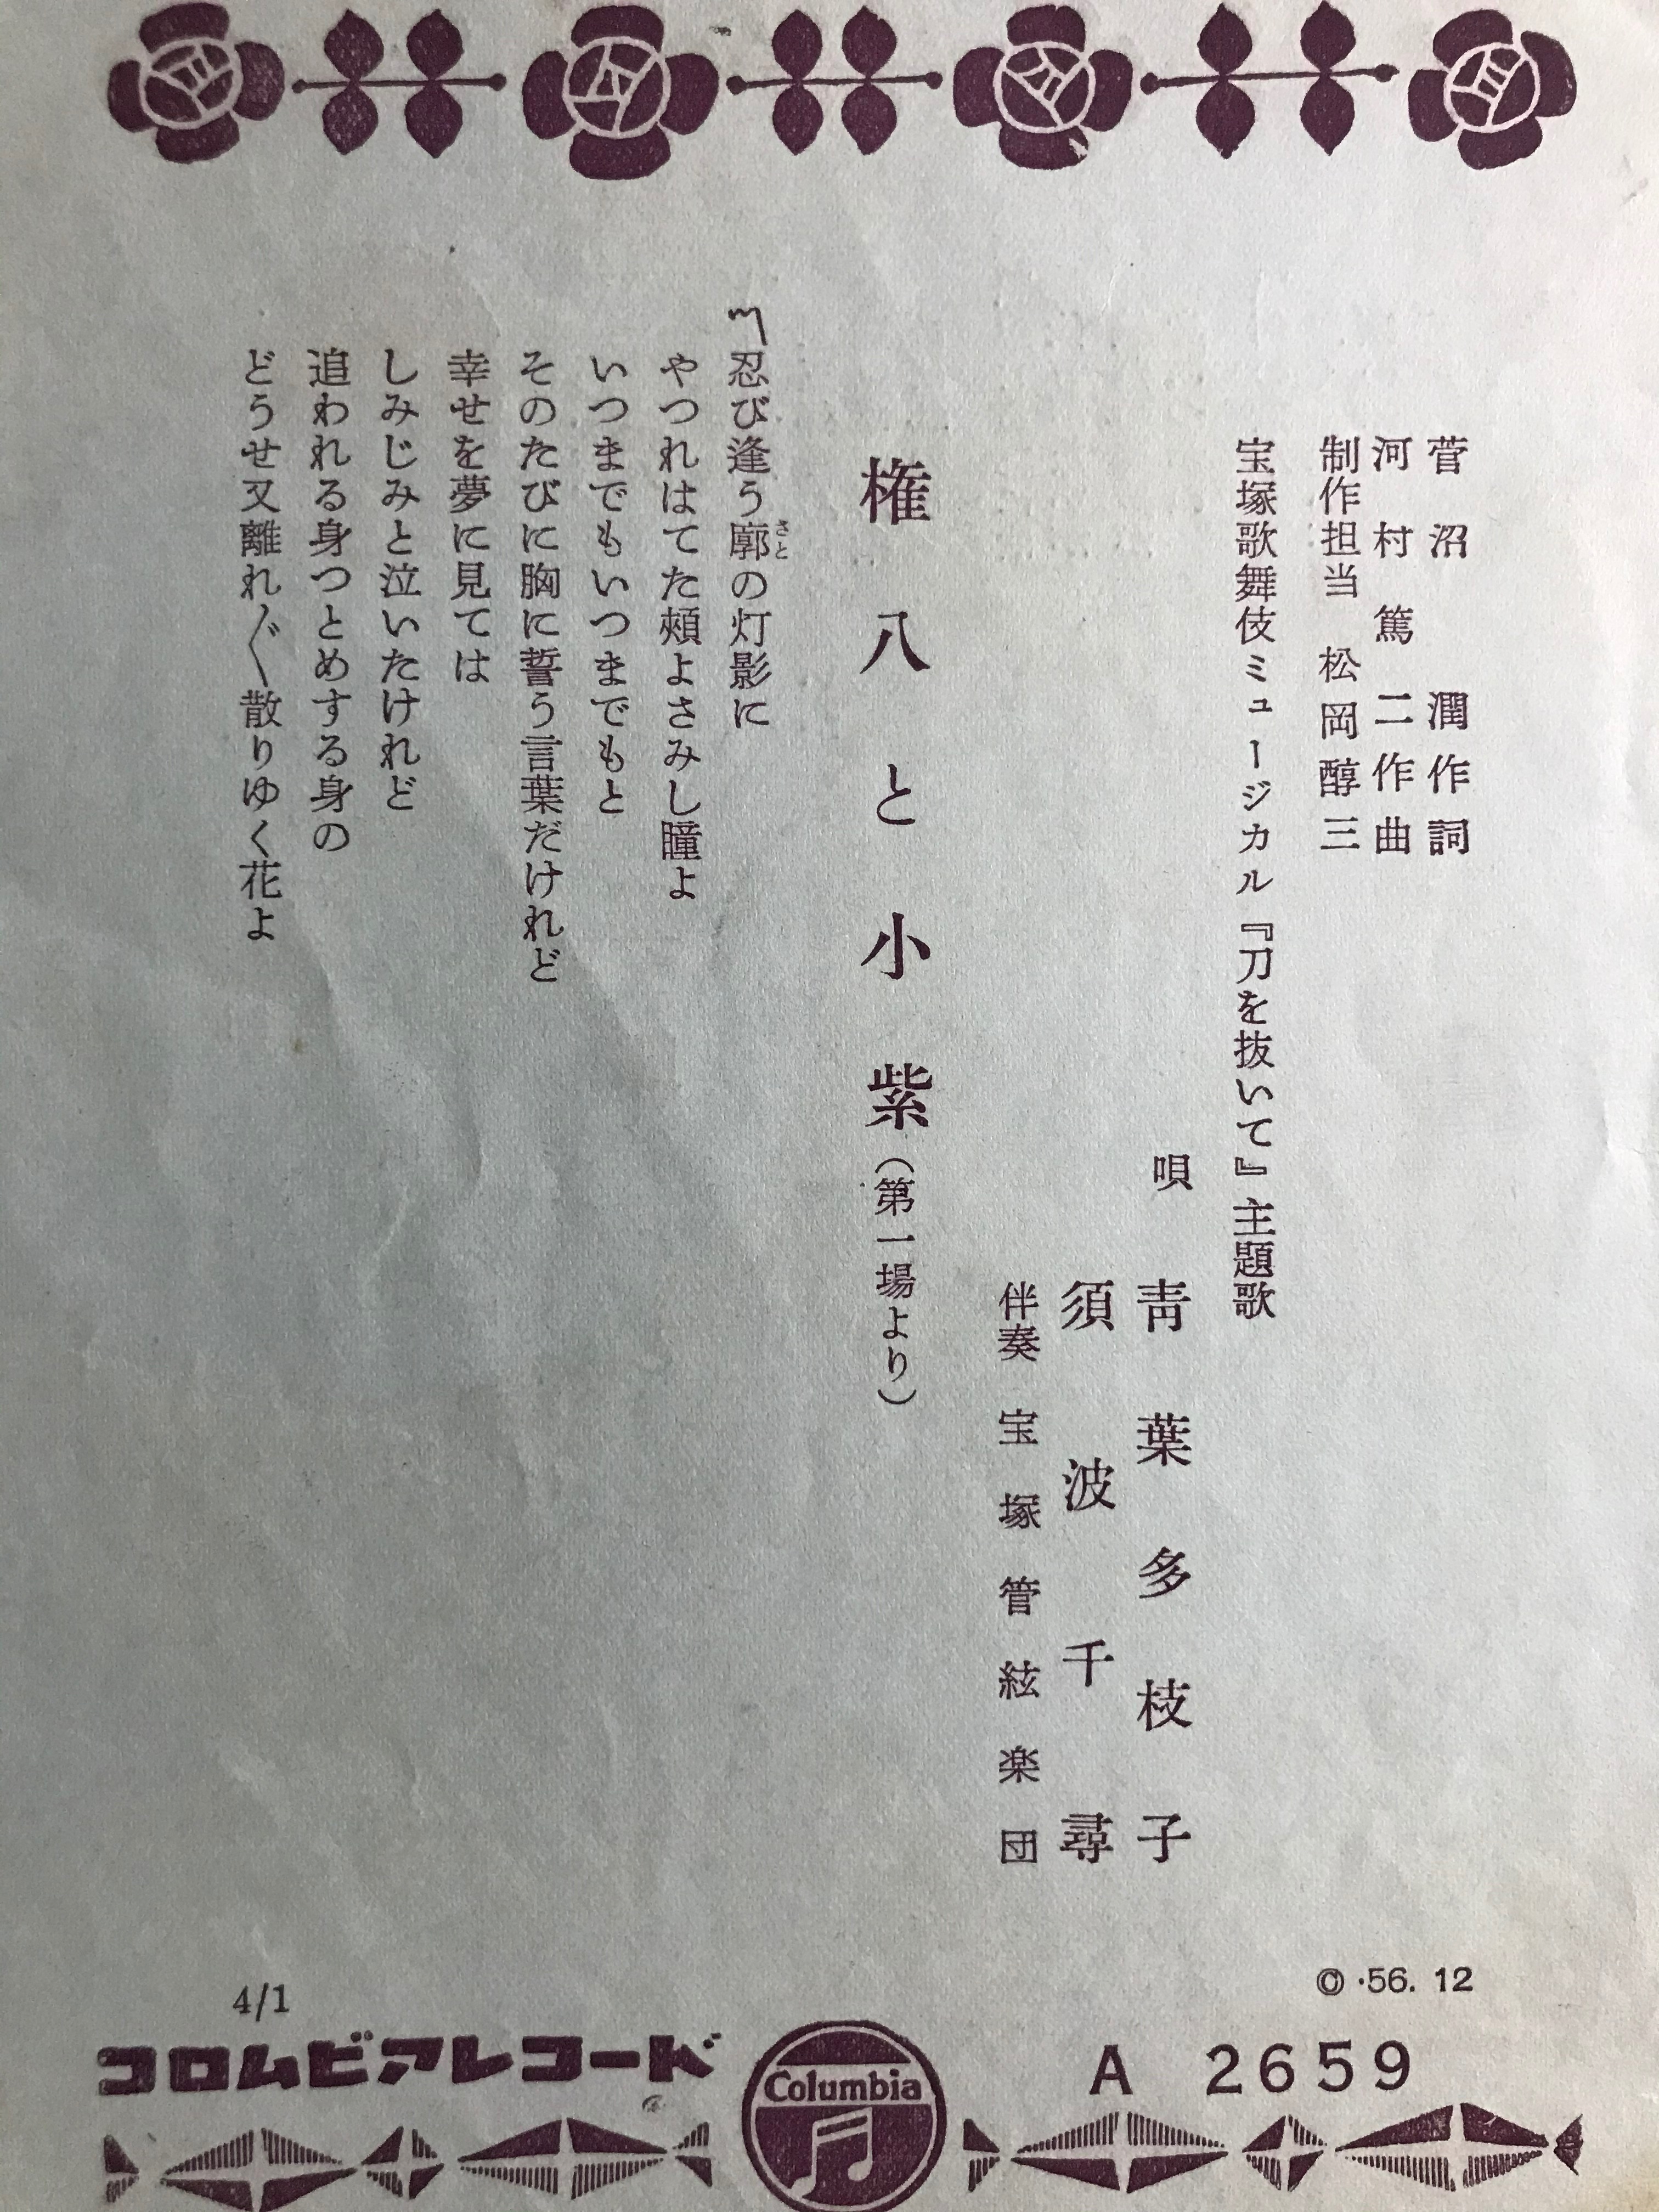 菅沼潤作詞
河村篤二作曲
制作担当 松岡醇三
宝塚歌舞伎ミュージカル『刀を抜いて』主題歌
唄 青葉多枝子
須波千尋
伴奏 宝塚管絃楽団
権八と小紫(第一場より)
〽忍び逢う廓の灯影に
さと
やつれはてた頬よさみし瞳よ
いつまでもいつまでもと
そのたびに胸に誓う言葉だけれど
幸せを夢に見ては
しみじみと泣いたけれど
追われる身つとめする身の
どうせ又離れ〴〵散りゆく花よ
© ・56. 12
4/1
コロムビアレコード
Columbia
A 2659